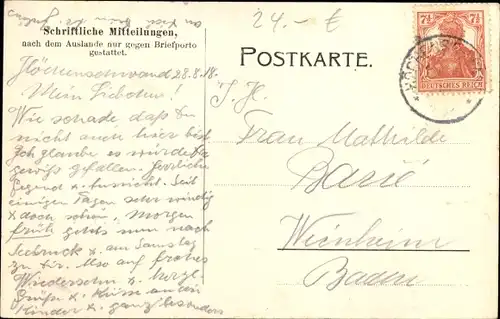 24.- €
Schriftliche Mitteilungen,
nach dem Auslande nur gegen Briefporto
gestattet.
POSTKARTE.
7½ 7½
DEUTSCHES REICH
Höchenschwand 28.8.18.
Mein Liebchen!
Wie schade dass Du
nicht auch hier bist
Ich glaube es würde Dir
gewiss gefallen. Herrliche
Gegend & Aussicht. Seit
einigen Tagen sehr windig
& doch schön. Morgen
früh gehts nun nach
Seebruck & am Samstag
zu Dir. Also auf frohes
Wiedersehn & herzl.
Grüße & Küsse an den
Kinder & ganz besonders
Frau Mathilde
Weinheim
Baden